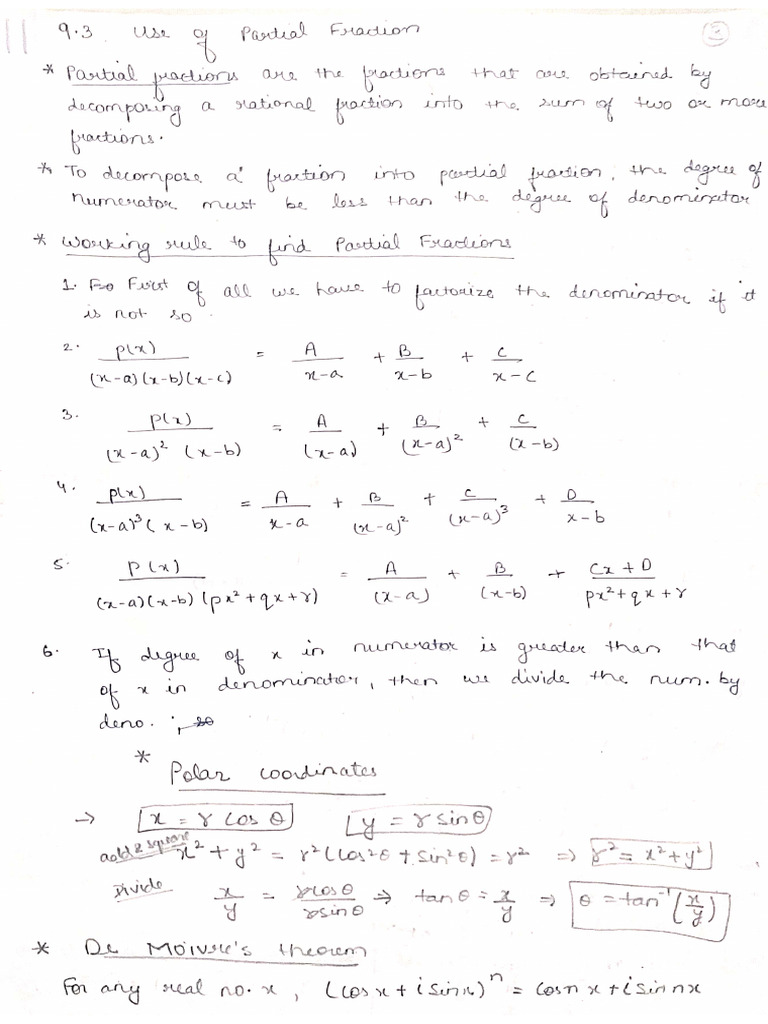 9.3 Use of Partial Fraction
* Partial fractions are the fractions that are obtained by
decomposing a rational fraction into the sum of two or more
fractions.
* To decompose a fraction into partial fraction, the degree of
numerator must be less than the degree of denominator
* Working rule to find Partial Fractions
1. Fo First of all we have to factorize the denominator if it
is not so.
2. P(x)/(x-a)(x-b)(x-c) = A/x-a + B/x-b + C/x-c
3. P(x)/(x-a)² (x-b) = A/(x-a) + B/(x-a)² + C/(x-b)
4. P(x)/(x-a)³(x-b) = A/x-a + B/(x-a)² + C/(x-a)³ + D/x-b
5. P(x)/(x-a)(x-b)(px²+qx+r) = A/(x-a) + B/(x-b) + Cx+D/px²+qx+r
6. If degree of x in numerator is greater than that
of x in denominator, then we divide the num. by
deno.
* Polar coordinates
→ x = r cos θ y = r sin θ
add & square x² + y² = r²(cos²θ + sin²θ) = r² ⇒ r² = x²+y²
Divide x/y = rcosθ/rsinθ ⇒ tanθ = x/y ⇒ θ = tan⁻¹(x/y)
* De Moivre's theorem
For any real no. x, (cosx + i sinx)ⁿ = cosnx + i sin nx